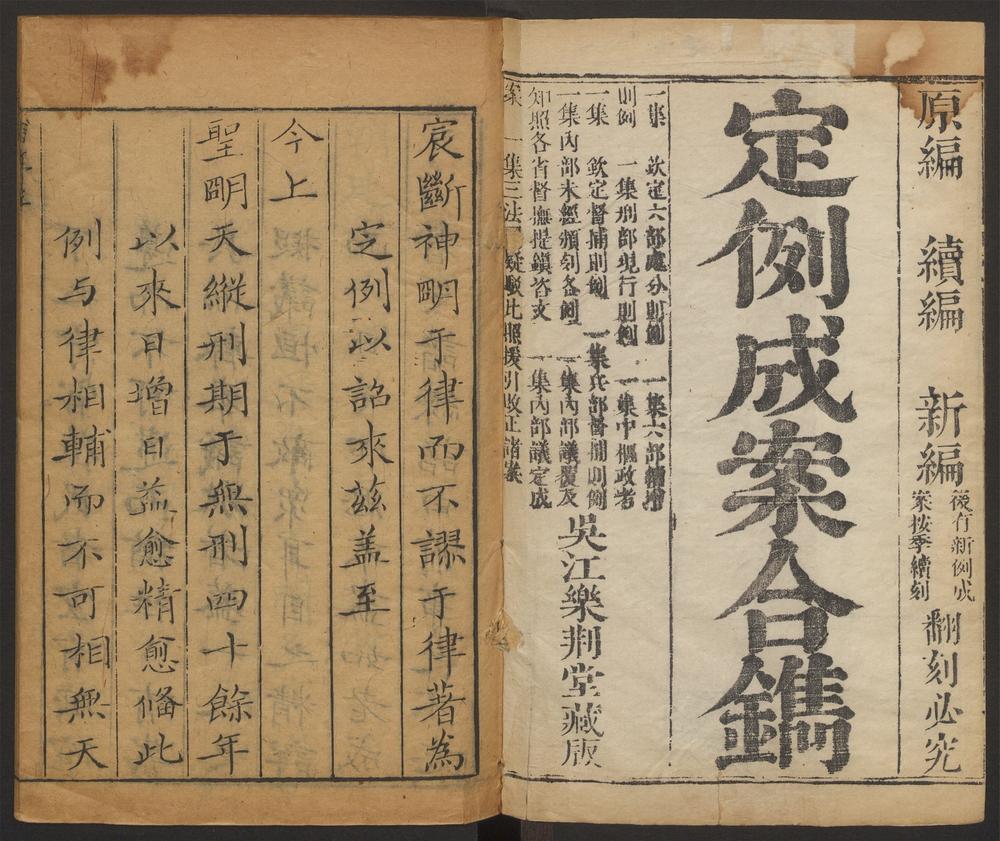 原編 續編 新編 後有新例成
案按季續刻 翻刻必究
定例成案合鐫
一集 欽定六部處分則例 一集六部續增
則例 一集刑部現行則例 一集中樞政考
一集 欽定督捕則例 一集兵部督捕則例
一集內部未經頒刻各例 一集內部議覆及
知照各省督撫提鎮咨文 一集內部議定成
案 一集三法 疑駁比照援引改正諸案
吳江樂荆堂藏版
宸斷神明于律而不謬于律著為
定例以詔來茲盖至
今上
聖明天縱刑期于無刑四十餘年
以來日增日益愈精愈備此
例与律相輔而不可相無天